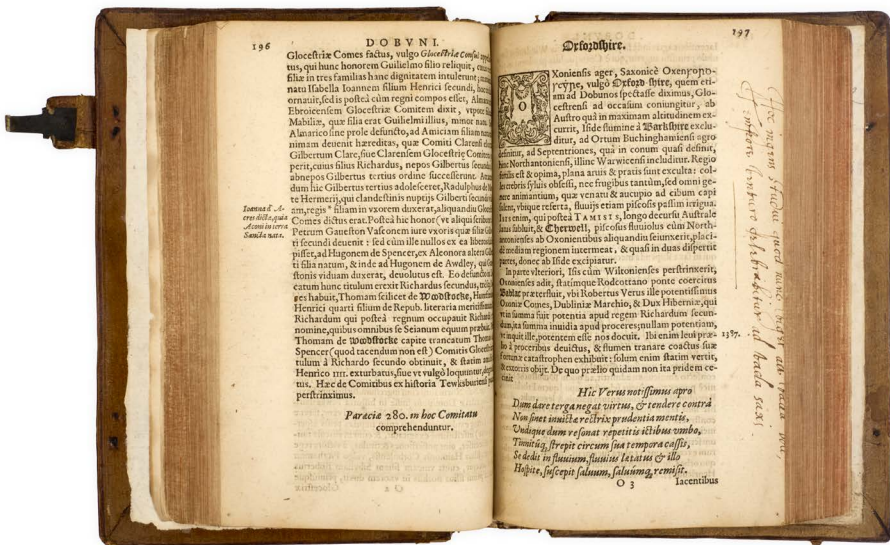 196
DOBVNI.
Glocestriæ Comes factus, vulgo Glocestriæ Consul
tus, qui hunc honorem Guilielmo filio reliquit,
filiæ in tres familias hanc dignitatem intulerunt;
natu Isabella Ioannem filium Henrici secundi, hoc
ornauit, sed is posteà cùm regni compos esset, Almarico
Ebroicensem Glocestriæ Comitem dixit, vtpote
Mabiliæ, quæ filia erat Guilielmi illius, minor natu.
Almarico sine prole defuncto, ad Amiciam filiam
nimam deuenit hæreditas, quæ Comiti Clarensi
Gilbertum Clare, siue Clarensem Glocestrię Comitem
perit, cuius filius Richardus, nepos Gilbertus secundus,
abnepos Gilbertus tertius ordine successerunt.
dum hic Gilbertus tertius adolesceret, Radulphus de
te Hermerij, qui clandestinis nuptijs Gilberti secundi
am, regis * filiam in vxorem duxerat, aliquandiu
Comes dictus erat. Posteà hic honor (vt aliqui
Petrum Gaueston Vasconem iure vxoris quæ filia
ti secundi deuenit: sed cùm ille nullos ex ea liberos
pisset, ad Hugonem de Spencer, ex Aleonora altera
ti filia natum, & inde ad Hugonem de Awdley, qui
stonis viduam duxerat, deuolutus est. Eo defuncto
catum hunc titulum erexit Richardus secundus,
ges habuit, Thomam scilicet de Woodstocke,
Henrici quarti filium de Repub. literaria
Richardum qui posteà regnum occupauit
nomine, quibus omnibus se Seianum equum præbuit.
Thomam de Woodstocke capite truncatum Thomas
Spencer (quod tacendum non est) Comitis
tulum à Richardo secundo obtinuit, & statim ab
Henrico IIII. exturbatus, siue vt vulgò loquuntur,
tus. Hæc de Comitibus ex historia Tewksburiensi
perstrinximus.
Ioanna d' A-
cres dicta, quia
Aconi in terra
Sancta nata.
Parœciæ 280. in hoc Comitatu
comprehenduntur.
Oxfordshire.
197
OXoniensis ager, Saxonicè Oxenꝼoꞃꝺ-
ꞅcẏꞃe, vulgò Oxford shire, quem eti-
am ad Dobunos spectasse diximus, Glo-
cestrensi ad occasum coniungitur, ab
Austro quà in maximam altitudinem ex-
currit, Iside flumine à Barkshire exclu-
ditur, ad Ortum Buchinghamiensi agro
definitur, ad Septentriones, quà in conum quasi desinit,
hinc Northantoniensi, illinc Warwicensi includitur. Regio
fertilis est & opima, plana aruis & pratis sunt exculta: col-
les crebris syluis obsessi, nec frugibus tantùm, sed omni ge-
nere animantium, quæ venatu & aucupio ad cibum capi
solent, vbique referta, fluuijs etiam piscosis passim irrigua.
Isis enim, qui posteà TAMISIS, longo decursu Australe
latus subluit, & Cherwell, piscosus fluuiolus cùm North-
antonienses ab Oxoniensibus aliquandiu seiunxerit, placi-
dè mediam regionem intermeat, & quasi in duas dispertit
partes, donec ab Iside excipiatur.
In parte vlteriori, Isis cùm Wiltonienses perstrinxerit,
Oxonienses adit, statimque Rodcottano ponte coërcitus
Bablac præterfluit, vbi Robertus Verus ille potentissimus
Oxoniæ Comes, Dubliniæ Marchio, & Dux Hiberniæ, qui
vt in summa fuit potentia apud regem Richardum secun-
dum, ita summa inuidia apud proceres; nullam potentiam,
vt inquit ille, potentem esse nos docuit. Ibi enim leui præ-
lio à proceribus deuictus, & flumen tranare coactus suæ
fortunæ catastrophen exhibuit: solum enim statim vertit,
& extorris obijt. De quo prælio quidam non ita pridem ce-
cinit
1387.
Hic Verus notissimus apro
Dum dare terga negat virtus, & tendere contrà
Non sinet inuictæ rectrix prudentia mentis,
Vndique dum resonat repetitis ictibus vmbo,
Tinnitúq, strepit circum sua tempora cassis,
Se dedit in fluuium, fluuius lætatus & illo
Hospite, suscepit saluum, saluúmq, remisit.
O 3
Iacentibus